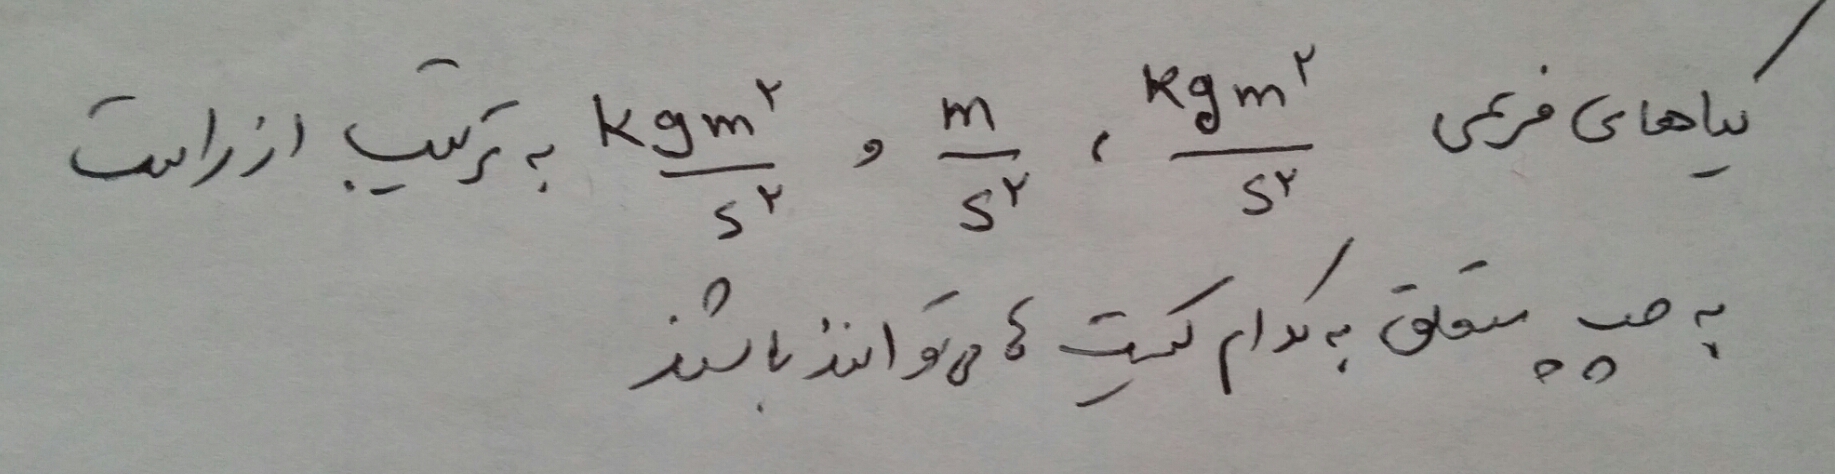 یکاهای فرعی kgm²/s² ، m/s² و kgm²/s² به ترتیب از راست
به چپ متعلق به کدام کمیت ها می توانند باشند